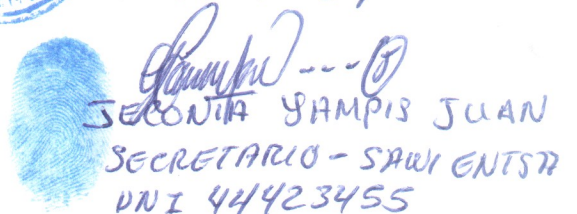 JECONIA YAMPIS JUAN
SECRETARIO - SAWI ENTSA
DNI 44423455